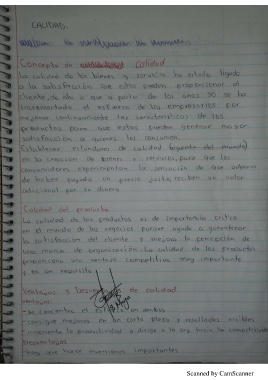 CALIDAD.
Concepto de calidad
La calidad de los bienes y servicios ha estado ligado
a la satisfacción que estos pueden proporcionar al
cliente, es así que a partir de los años 90 se ha
incrementado el esfuerzo de los empresarios por
mejorar continuamente las características de los
productos para que estos puedan generar mayor
satisfacción a quienes los consumen.
Establecer estándares de calidad
en la creación de bienes y servicios, para que los
consumidores experimenten la sensación de que además
de haber pagado un precio justo, reciben un valor
adicional por su dinero
Calidad del producto
La calidad de los productos es de importancia crítica
en el mundo de los negocios porque ayuda a garantizar
la satisfacción del cliente y mejora la percepción de
una marca de organización. La calidad de los productos
proporciona una ventaja competitiva muy importante
y es un requisito
Ventajas y de calidad
Ventajas:
- Se concentra el esfuerzo en ambos
- consigue mejoras en un corto plazo y resultados visibles
- incrementa la productividad y dirige a la org. hacia la competitividad
Desventajas
- hay que hacer inversiones importantes
Scanned by CamScanner